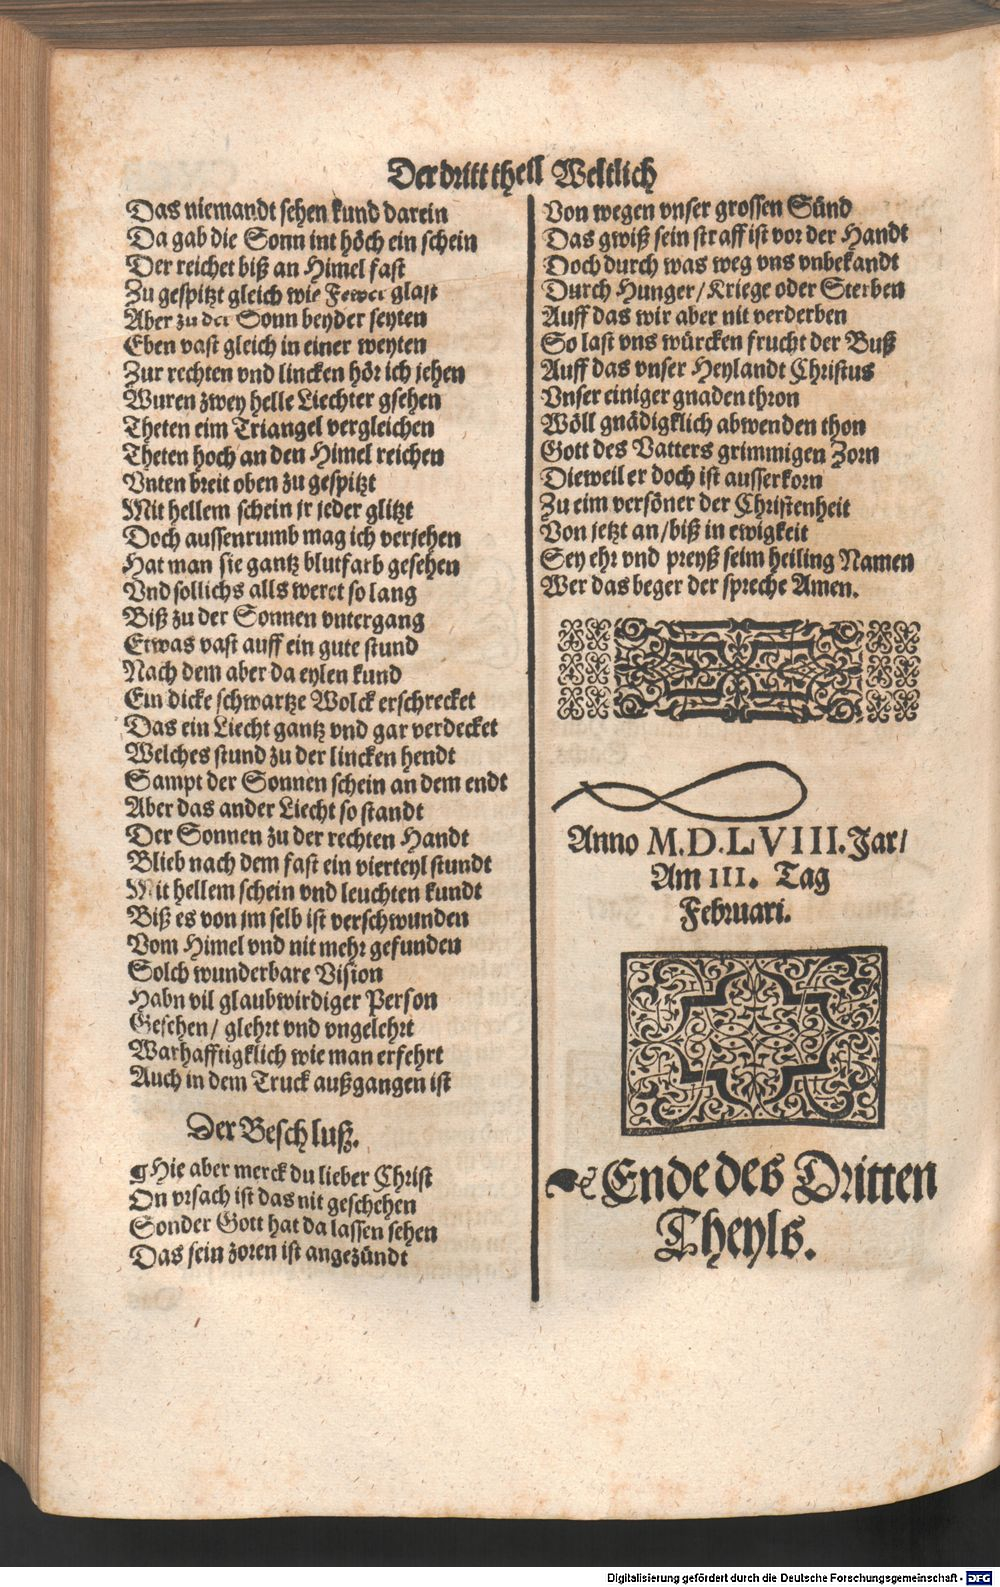 Der dritt theil Weltlich
Das niemandt sehen kund darein
Da gab die Sonn int höch ein schein
Der reichet biß an Himel fast
Zu gespitzt gleich wie Fewer glast
Aber zu der Sonn beyder seyten
Eben vast gleich in einer weyten
Zur rechten vnd lincken hör ich jehen
Wuren zwey helle Liechter gsehen
Theten eim Triangel vergleichen
Theten hoch an den Himel reichen
Vnten breit oben zu gespitzt
Mit hellem schein jr jeder glitzt
Doch aussenrumb mag ich verjehen
Hat man sie gantz blutfarb gesehen
Vnd sollichs alls weret so lang
Biß zu der Sonnen vntergang
Etwas vast auff ein gute stund
Nach dem aber da eylen kund
Ein dicke schwartze Wolck erschrecket
Das ein Liecht gantz vnd gar verdecket
Welches stund zu der lincken hendt
Sampt der Sonnen schein an dem endt
Aber das ander Liecht so standt
Der Sonnen zu der rechten Handt
Blieb nach dem fast ein vierteyl stundt
Mit hellem schein vnd leuchten kundt
Biß es von jm selb ist verschwunden
Vom Himel vnd nit mehr gefunden
Solch wunderbare Vision
Habn vil glaubwirdiger Person
Gesehen/ glehrt vnd vngelehrt
Warhafftigklich wie man erfehrt
Auch in dem Truck außgangen ist
Der Beschluß.
Hie aber merck du lieber Christ
On vrsach ist das nit geschehen
Sonder Gott hat da lassen sehen
Das sein zoren ist angezündt
Von wegen vnser grossen Sünd
Das gwiß sein straff ist vor der Handt
Doch durch was weg vns vnbekandt
Durch Hunger/ Kriege oder Sterben
Auff das wir aber nit verderben
So last vns würcken frucht der Buß
Auff das vnser Heylandt Christus
Vnser einiger gnaden thron
Wöll gnädigklich abwenden thon
Gott des Vatters grimmigen Zorn
Dieweil er doch ist ausserkorn
Zu eim versöner der Christenheit
Von jetzt an/ biß in ewigkeit
Sey ehr vnd preyß seim heiling Namen
Wer das beger der spreche Amen.
Anno M.D.LVIII. Jar/
Am III. Tag
Februari.
Ende des Dritten
Theyls.
Digitalisierung gefördert durch die Deutsche Forschungsgemeinschaft - DFG